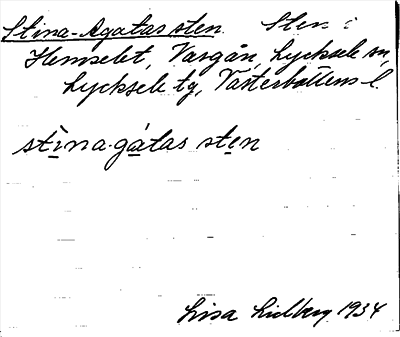 Stina-Agatas sten. Sten i
Hemselet, Vargån, Lycksele sn,
Lycksele tg, Västerbottens l.
stìna-gátas sten
Lisa Lidberg 1934